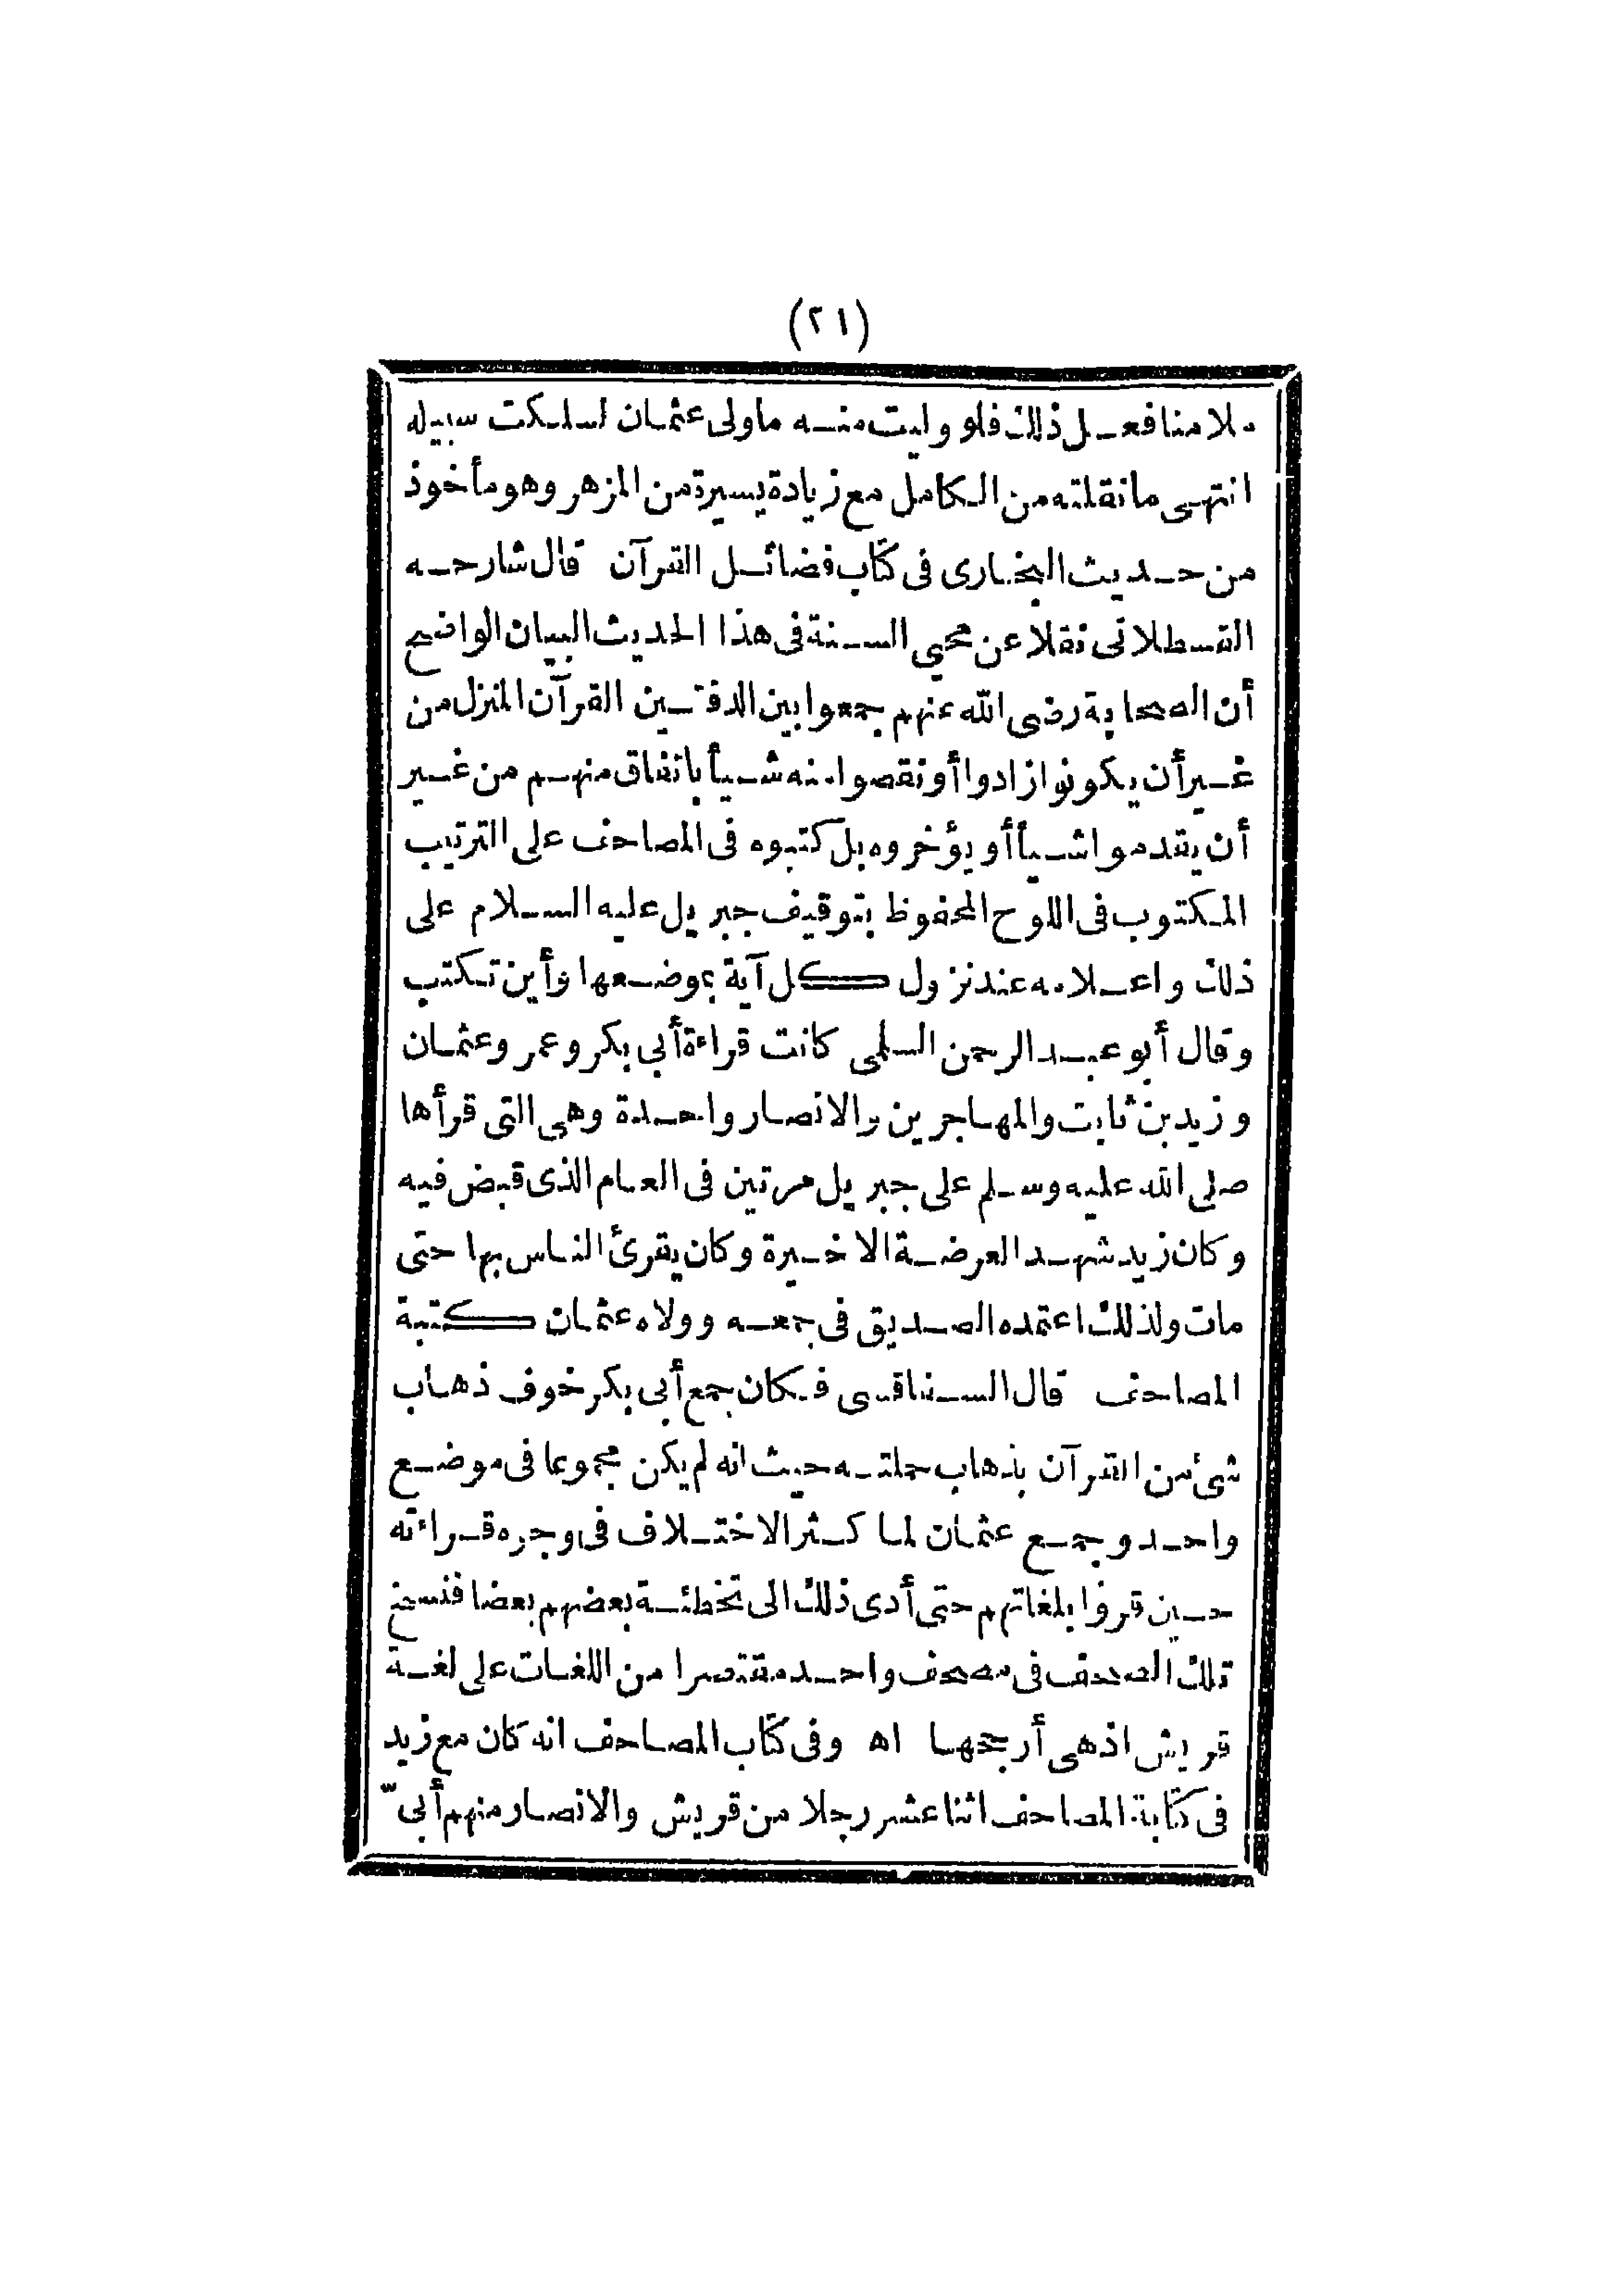 (٢١)
ملا منا فعل ذلك فلو وليت منه ما ولى عثمان لسلكت سبيله
انتهى ما نقلته من الكامل مع زيادة يسيرة من المزهر وهو مأخوذ
من حديث البخارى فى كتاب فضائل القرآن قال شارحه
القسطلانى نقلا عن محيي السنة فى هذا الحديث البيان الواضح
أن الصحابة رضى الله عنهم جمعوا بين الدفتين القرآن المنزل من
غير أن يكونوا زادوا أو نقصوا منه شيأ باتفاق منهم من غير
أن يقدموا شيأ أو يؤخروه بل كتبوه فى المصاحف على الترتيب
المكتوب فى اللوح المحفوظ بتوقيف جبريل عليه السلام على
ذلك واعلامه عند نزول كل آية بموضعها وأين تكتب
وقال أبو عبد الرحمن السلمى كانت قراءة أبى بكر وعمر وعثمان
وزيد بن ثابت والمهاجرين والانصار واحدة وهى التى قرأها
صلى الله عليه وسلم على جبريل مرتين فى العام الذى قبض فيه
وكان زيد شهد العرضة الاخيرة وكان يقرئ الناس بها حتى
مات ولذلك اعتمده الصديق فى جمعه وولاه عثمان كتبة
المصاحف قال السفاقسى فكان جمع أبى بكر خوف ذهاب
شئ من القرآن بذهاب حملته حيث انه لم يكن مجموعا فى موضع
واحد وجمع عثمان لما كثر الاختلاف فى وجوه قراءته
حين قرؤا بلغاتهم حتى أدى ذلك الى تخطئة بعضهم بعضا فنسخ
تلك الصحف فى مصحف واحد مقتصرا من اللغات على لغة
قريش اذهى أرجحها اه وفى كتاب المصاحف انه كان مع زيد
فى كتابة المصاحف اثنا عشر رجلا من قريش والانصار منهم أبىّ